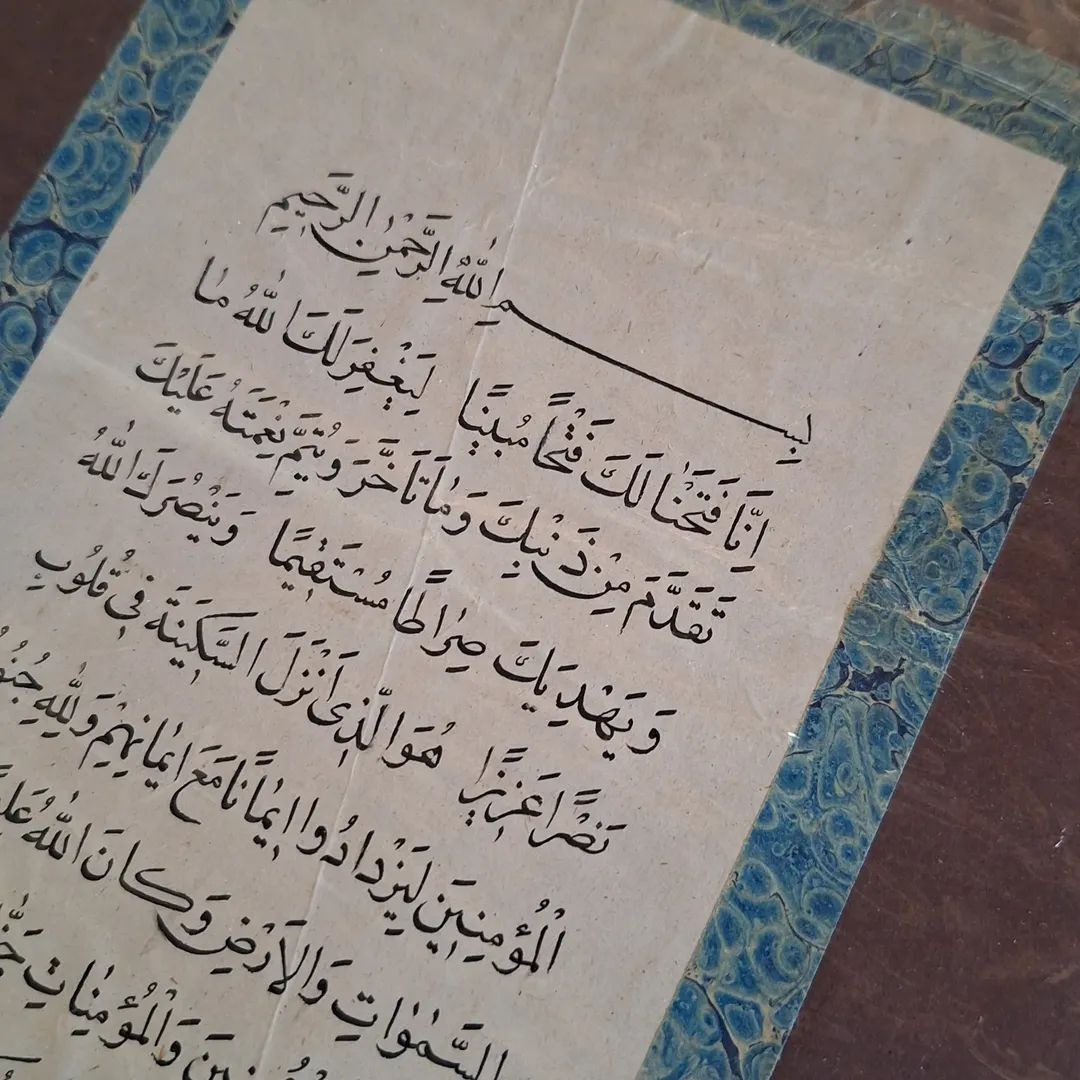 بِسْمِ اللّٰهِ الرَّحْمٰنِ الرَّحِيمِ
اِنَّا فَتَحْنَا لَكَ فَتْحًا مُبِينًا لِيَغْفِرَ لَكَ اللّٰهُ مَا
تَقَدَّمَ مِنْ ذَنْبِكَ وَمَا تَاَخَّرَ وَيُتِمَّ نِعْمَتَهُ عَلَيْكَ
وَيَهْدِيَكَ صِرَاطًا مُسْتَقِيمًا وَيَنْصُرَكَ اللّٰهُ
نَصْرًا عَزِيزًا هُوَ الَّذِى اَنْزَلَ السَّكِينَةَ فِى قُلُوبِ
الْمُؤْمِنِينَ لِيَزْدَادُوا اِيمَانًا مَعَ اِيمَانِهِمْ وَلِلّٰهِ
السَّمٰوَاتِ وَالْاَرْضِ وَكَانَ اللّٰهُ
وَالْمُؤْمِنَاتِ